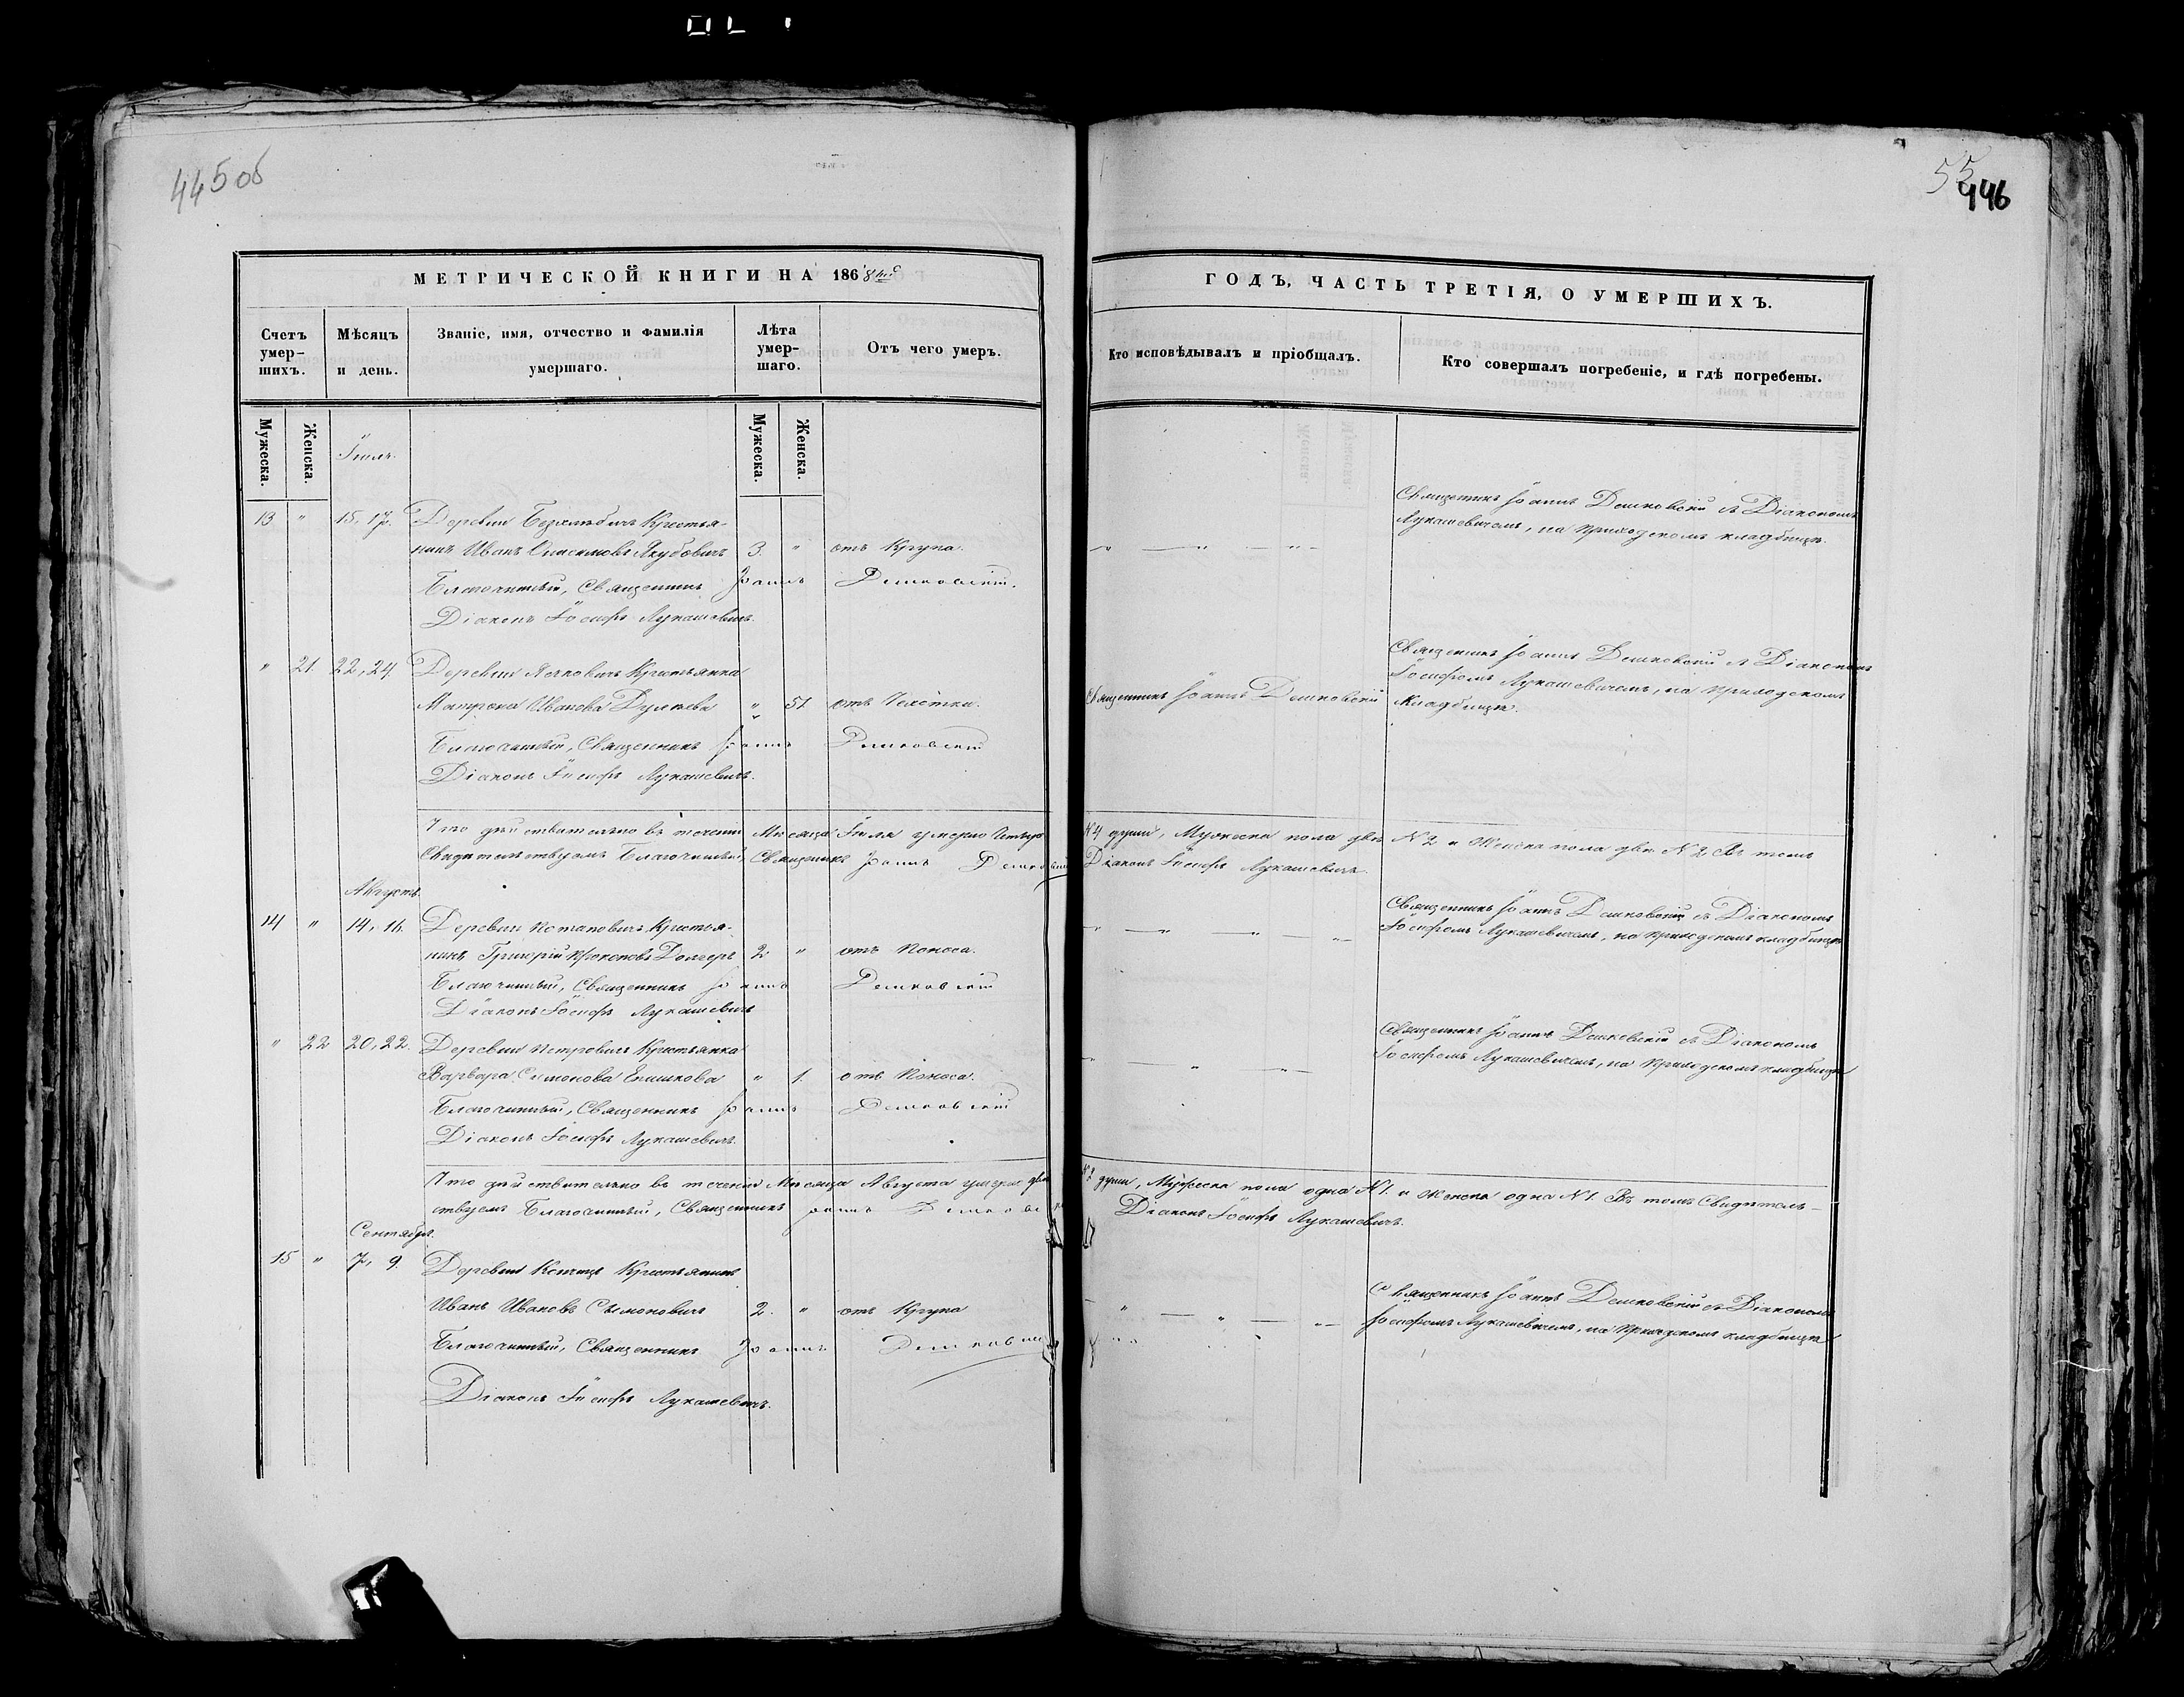 445 об
55
446
МЕТРИЧЕСКОЙ КНИГИ НА 1868й
ГОДЪ, ЧАСТЬ ТРЕТІЯ, О УМЕРШИХЪ.
Счетъ умер-шихъ.
Мѣсяцъ и день.
Званіе, имя, отчество и фамилія умершаго.
Лѣта умер-шаго.
Отъ чего умеръ.
Кто исповѣдывалъ и пріобщалъ.
Кто совершалъ погребеніе, и гдѣ погребены.
Мужеска.
Женска.
Мужеска.
Женска.
Іюль.
13 " 15, 17. Деревни Крестья-
нинъ Иванъ Якубовичъ 3. " отъ Крупа.
Благочинный, Священникъ Іоаннъ Дешковскій.
Діаконъ Іосифъ Лукашевичъ.
Священникъ Іоаннъ Дешковскій съ Діакономъ
Лукашевичемъ, на приходскомъ кладбищѣ.
" 21 22, 24. Деревни Крестьянка
Матрона Иванова " 51 отъ
Благочинный, Священникъ Іоаннъ Дешковскій
Діаконъ Іосифъ Лукашевичъ.
Священникъ Іоаннъ Дешковскій
Священникъ Іоаннъ Дешковскій съ Діакономъ
Іосифомъ Лукашевичемъ, на приходскомъ
кладбищѣ.
Что дѣйствительно въ теченіи Мѣсяца Іюля умерло четыре N 4 души, Мужеска пола двѣ N 2 и Женска пола двѣ N 2, Въ томъ
Свидетельствуемъ Благочинный, Священникъ Іоаннъ Дешковскій Діаконъ Іосифъ Лукашевичъ.
Августъ.
14 " 14, 16. Деревни Потаповичъ Крестья-
нинъ Григорій 2 " отъ Поноса.
Благочинный, Священникъ Іоаннъ Дешковскій
Діаконъ Іосифъ Лукашевичъ
Священникъ Іоаннъ Дешковскій съ Діакономъ
Іосифомъ Лукашевичемъ, на приходскомъ кладбищѣ
" 22 20, 22. Деревни Петровичъ Крестьянка
Варвара Симонова " 1. отъ Поноса.
Благочинный, Священникъ Іоаннъ Дешковскій
Діаконъ Іосифъ Лукашевичъ.
Священникъ Іоаннъ Дешковскій съ Діакономъ
Іосифомъ Лукашевичемъ, на приходскомъ кладбищѣ
Что дѣйствительно въ теченіи Мѣсяца Августа умерло двѣ N 2 души, Мужеска пола одна N 1. и Женска одна N 1. Въ томъ Свидетель-
ствуемъ Благочинный, Священникъ Іоаннъ Дешковскій Діаконъ Іосифъ Лукашевичъ.
Сентябрь.
15 " 7, 9. Деревни Крестьянинъ
Иванъ Ивановъ Симоновичъ 2. " отъ Крупа
Благочинный, Священникъ Іоаннъ Дешковскій
Діаконъ Іосифъ Лукашевичъ.
Священникъ Іоаннъ Дешковскій съ Діакономъ
Іосифомъ Лукашевичемъ, на приходскомъ кладбищѣ